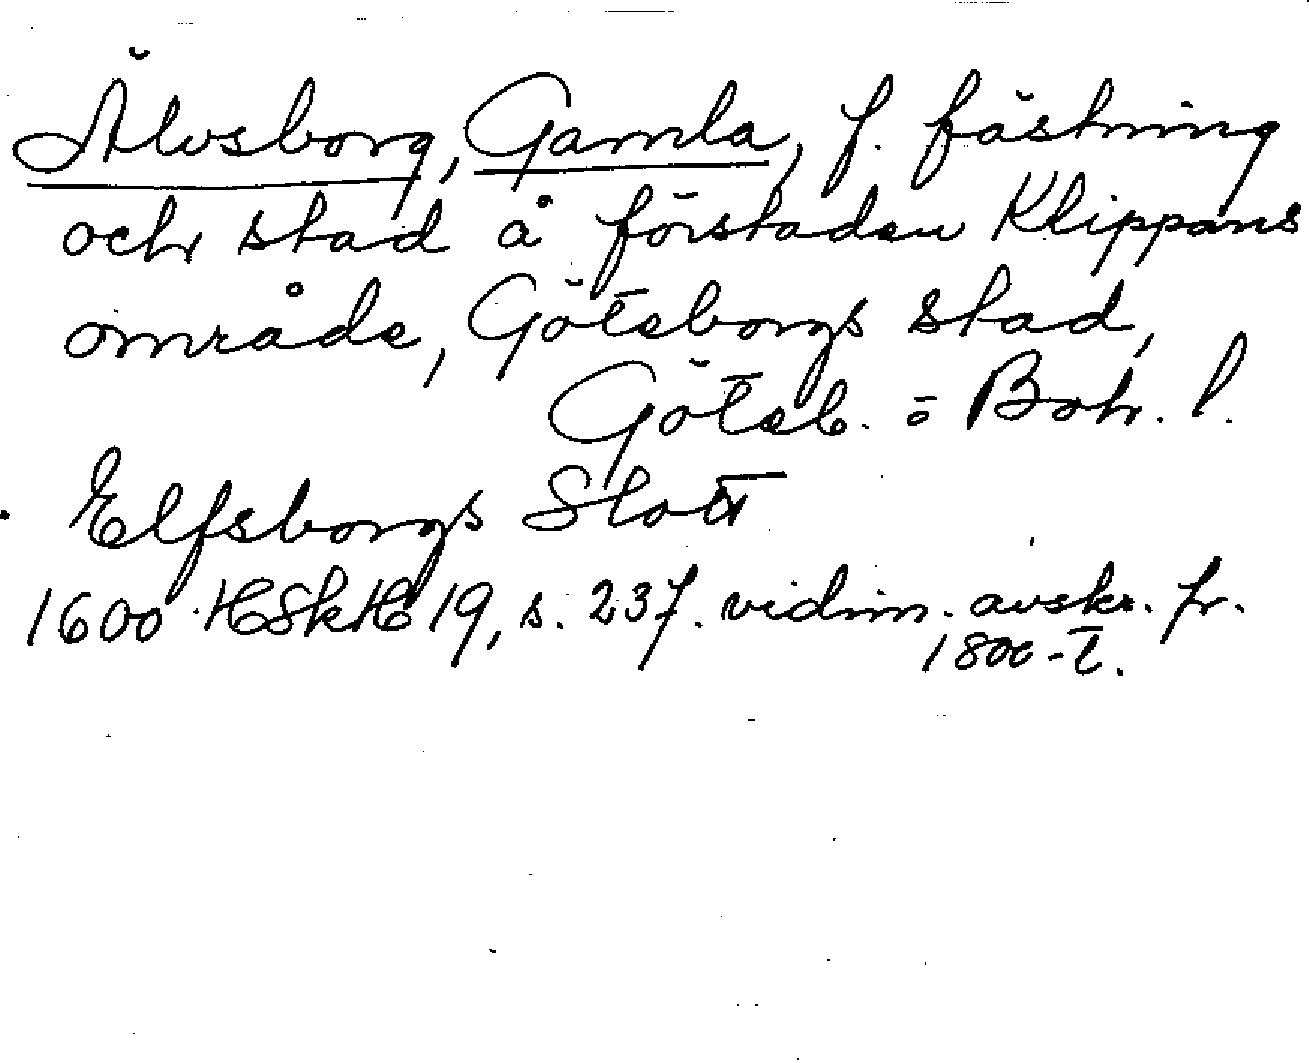 Älvsborg, Gamla, f. fästning
och stad å förstaden Klippans
område, Göteborgs stad,
Göteb. o Boh. l.
Elfsborgs Slott
1600 HSkH 19, s. 237. vidim. avskr. fr.
1800-t.